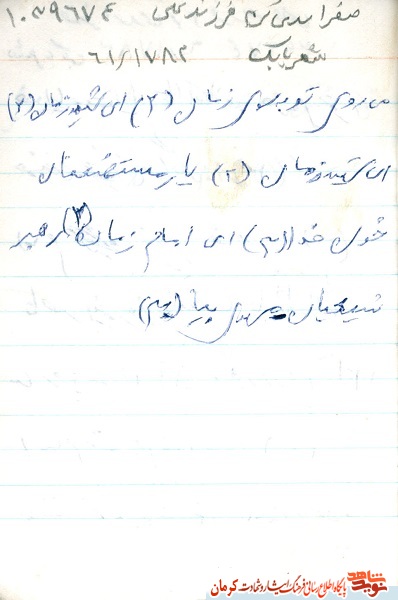 صفرا سدی گر فرزند علی ۱۰۳۹۶۷۴
شهر بابک ۶۱/۱/۷۸۲
می روی تو بسوی زمان (۲) ای شهید زمان (۲)
ای شهید زمان (۲) یار مستضعفان
خون خدا (۲) ای امام زمان (۲) رهبر
شیعیان مهدی بیا (۲)
نوید شاهد پایگاه اطلاع رسانی فرهنگ ایثار و شهادت کرمان